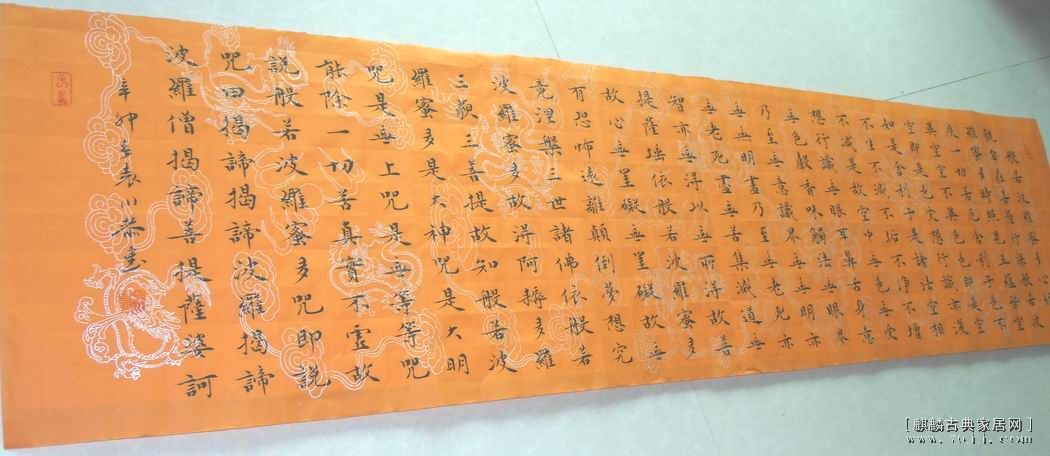 般若波羅蜜多心經
觀自在菩薩行深般若波
羅蜜多時照見五蘊皆空
度一切苦厄舍利子色不
異空空不異色色即是空
空即是色受想行識亦復
如是舍利子是諸法空相
不生不滅不垢不淨不增
不減是故空中無色無受
想行識無眼耳鼻舌身意
無色聲香味觸法無眼界
乃至無意識界無無明亦
無無明盡乃至無老死亦
無老死盡無苦集滅道無
智亦無得以無所得故菩
提薩埵依般若波羅蜜多
故心無罣礙無罣礙故無
有恐怖遠離顛倒夢想究
竟涅槃三世諸佛依般若
波羅蜜多故得阿耨多羅
三藐三菩提故知般若波
羅蜜多是大神咒是大明
咒是無上咒是無等等咒
能除一切苦真實不虛故
說般若波羅蜜多咒即說
咒曰揭諦揭諦 波羅揭諦
波羅僧揭諦菩提薩婆訶
辛卯年袁川恭書
[麒麟古典家居网]